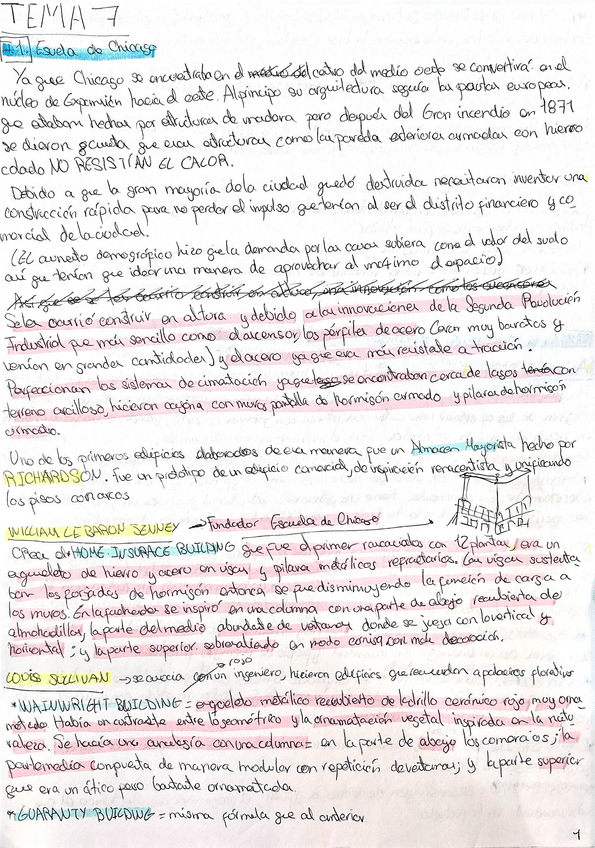 TEMA 7
7.1. Escuela de Chicago
Ya que Chicago se encuentraba en el centro del medio oeste se convertirá en el
núcleo de Expansión hacia el oeste. Al principio su arquitectura seguía las pautas europeas.
que estaban hechas por estructuras de madera pero después del Gran incendio en 1871
se dieron cuenta que esas estructuras como las paredes exteriores armadas con hierro
colado NO RESISTÍAN EL CALOR.
Debido a que la gran mayoría de la ciudad quedó destruida necesitaron inventar una
construcción rápida para no perder el impulso que tenían al ser el distrito financiero y co_
mercial de la ciudad.
(El aumento demográfico hizo que la demanda por las casas subiera como el valor del suelo
así que tenían que idear una manera de aprovechar al máximo el espacio)
Se les ocurrió construir en altura y debido a las innovaciones de la Segunda Revolución
Industrial que más sencillo como el ascensor, los pérfiles de acero (eran muy baratos y
venían en grandes cantidades) y el acero ya que era más resistente a tracción.
Perfeccionan los sistemas de cimatación ya que se encontraban cerca de lagos con
terreno arcilloso, hicieron cajória con muros pantalla de hormigón armado y pilares de hormigón
armado.
Uno de los primeros edificios elaborados de esa manera fue un Almacen Mayorista hecho por
RICHARDSON. Fue un prototipo de un edificio comercial, de inspiración renacentista y unificando
los pisos con arcos
WILLIAM LE BARON JENNEY → Fundador Escuela de Chicago
Crea el HOME INSURACE BUILDING que fue el primer rascacielos con 12 plantas, era un
esqueleto de hierro y acero en vigas y pilares metálicos refractarios. Las vigas sustenta_
ban los forjados de hormigón entonces se fue disminuyendo la función de carga a
los muros. En la fachada se inspiró en una columna con una parte de abajo recubierta de
almohadillas, la parte del medio abundate de ventanas donde se juega con lo vertical y
horizontal; y la parte superior sobresaliendo en modo cornisa con más decoración.
LOUIS SULLIVAN → se asocia con un ingeniero, hicieron edificios que recuerdan a palacios florentinos
rojo
* WAINWRIGHT BUILDING = esqueleto metálico recubierto de ladrillo cerámico rojo, muy orna_
metado. Había un contraste entre lo geométrico y la ornamatación vegetal inspirada en la natu_
raleza. Se hacía una analogía con una columna = en la parte de abajo los comercios; la
parte media conpuesta de manera modular con repetición de ventanas; y la parte superior
que era un ático piso bastate ornametada.
* GUARANTY BUILDING = misma fórmula que al anterior.
1